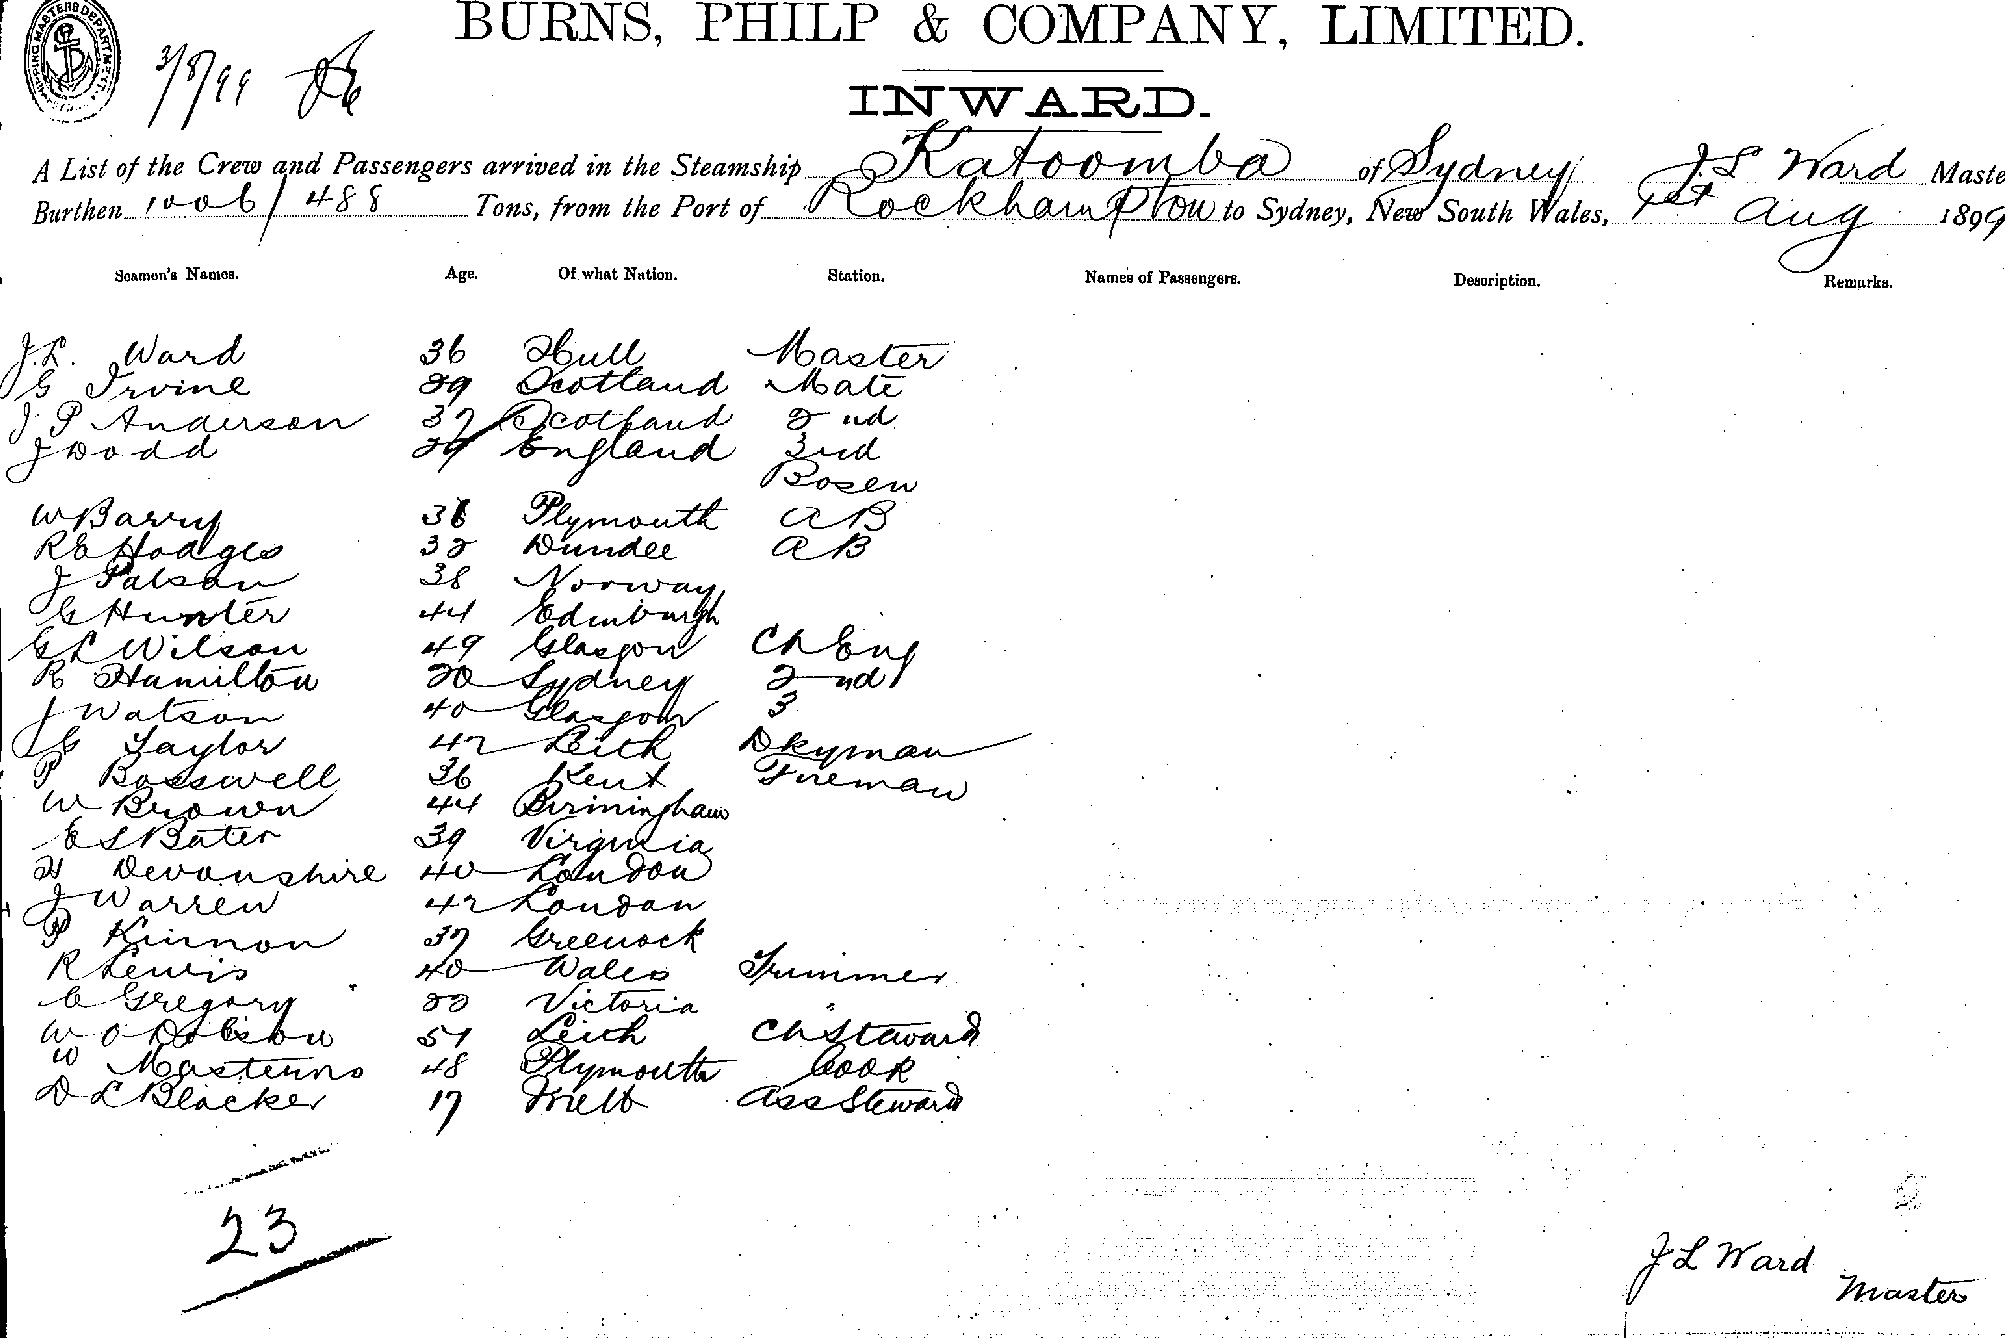 BURNS, PHILP & COMPANY, LIMITED.
3/8/99
INWARD.
A List of the Crew and Passengers arrived in the Steamship Katoomba of Sydney J L Ward Maste
Burthen 1006/488 Tons, from the Port of Rockhampton to Sydney, New South Wales, 1st Aug 1899
Seamen's Names. Age. Of what Nation. Station. Names of Passengers. Description. Remarks.
J.L. Ward 36 Hull Master
G Irvine 29 Scotland Mate
J P Anderson 37 Scotland 2nd
J Dodd 29 England 3rd
Bosen
W Barry 36 Plymouth AB
R E Hodges 32 Dundee AB
J Palson 38 Norway
G Hunter 44 Edinburgh
G L Wilson 49 Glasgow Ch Eng
R Hamilton 20 Sydney 2nd
J Watson 40 Glasgow 3
G Taylor 42 Leith Dkyman
P Bosswell 36 Kent Fireman
W Brown 44 Birmingham
E S Bater 39 Virginia
H Devonshire 40 London
J Warren 42 London
P Kinnon 37 Greenock
R Lewis 40 Wales Trimmer
C Gregory 22 Victoria "
W O Dobson 51 Leith Ch Steward
W 48 Plymouth Cook
D L Blacker 17 Melb Ass Steward
23
J L Ward
Master